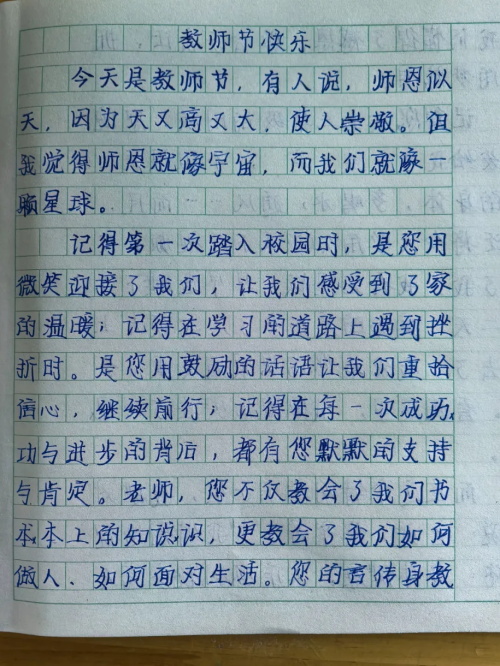 教师节快乐
今天是教师节，有人说，师恩似
天，因为天又高又大，使人崇敬。但
我觉得师恩就像宇宙，而我们就像一
颗星球。
记得第一次踏入校园时，是您用
微笑迎接了我们，让我们感受到了家
的温暖；记得在学习的道路上遇到挫
折时。是您用鼓励的话语让我们重拾
信心，继续前行；记得在每一次成功，
功与进步的背后，都有您默默的支持
与肯定。老师，您不仅教会了我们书
本，本上的知识识，更教会了我们如何
做人、如何面对生活。您的言传身教